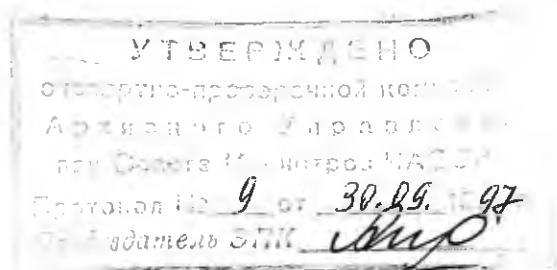 УТВЕРЖДЕНО
экспертно-проверочной
Архивного Управл
при Совете Министров ЧАССР
Протокол № 9 от 30.09. 1997
Председатель ЭПК